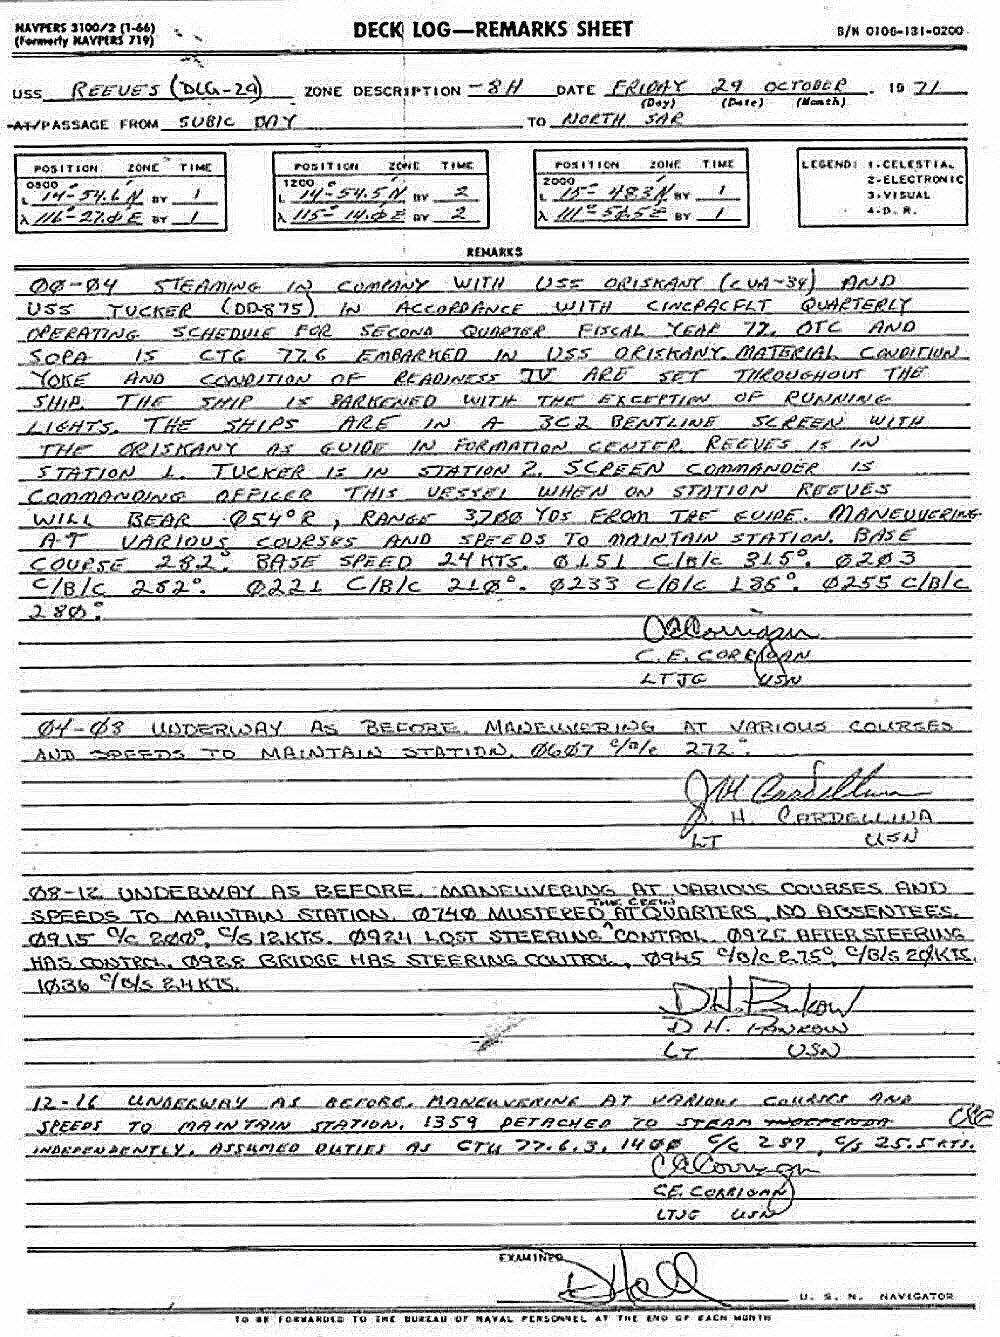 NAVPERS 3100/2 (1-66)
(Formerly NAVPERS 719)
DECK LOG—REMARKS SHEET
S/N 0106-131-0200
USS REEVES (DLG-24) ZONE DESCRIPTION -8H DATE FRIDAY 29 OCTOBER , 19 71
(Day) (Date) (Month)
AT/PASSAGE FROM SUBIC BAY TO NORTH SAR
POSITION ZONE TIME
0800
L 14°-54.6'N BY 1
λ 116°-27.0'E BY 1
POSITION ZONE TIME
1200
L 14°-54.5'N BY 2
λ 115°-14.0'E BY 2
POSITION ZONE TIME
2000
L 15°-48.3'N BY 1
λ 111°-56.5'E BY 1
LEGEND: 1-CELESTIAL
2-ELECTRONIC
3-VISUAL
4-D. R.
REMARKS
00-04 STEAMING IN COMPANY WITH USS ORISKANY (CVA-34) AND
USS TUCKER (DD-875) IN ACCORDANCE WITH CINCPACFLT QUARTERLY
OPERATING SCHEDULE FOR SECOND QUARTER FISCAL YEAR 72. OTC AND
SOPA IS CTG 77.6 EMBARKED IN USS ORISKANY. MATERIAL CONDITION
YOKE AND CONDITION OF READINESS IV ARE SET THROUGHOUT THE
SHIP. THE SHIP IS DARKENED WITH THE EXCEPTION OF RUNNING
LIGHTS. THE SHIPS ARE IN A 3C2 BENTLINE SCREEN WITH
THE ORISKANY AS GUIDE IN FORMATION CENTER. REEVES IS IN
STATION 1. TUCKER IS IN STATION 2. SCREEN COMMANDER IS
COMMANDING OFFICER THIS VESSEL WHEN ON STATION REEVES
WILL BEAR 054°R, RANGE 3700 YDS FROM THE GUIDE. MANEUVERING
AT VARIOUS COURSES AND SPEEDS TO MAINTAIN STATION. BASE
COURSE 282°. BASE SPEED 24 KTS. 0151 C/B/C 315°. 0203
C/B/C 282°. 0221 C/B/C 210°. 0233 C/B/C 186°. 0255 C/B/C
280°.
CECorrigan
C. E. CORRIGAN
LTJG USN
04-08 UNDERWAY AS BEFORE. MANEUVERING AT VARIOUS COURSES
AND SPEEDS TO MAINTAIN STATION. 0607 C/B/C 272°.
JH Cardellina
J. H. CARDELLINA
LT USN
08-12 UNDERWAY AS BEFORE. MANEUVERING AT VARIOUS COURSES AND
SPEEDS TO MAINTAIN STATION. 0740 MUSTERED THE CREW AT QUARTERS, NO ABSENTEES.
0915 C/C 200°, C/S 12 KTS. 0924 LOST STEERING CONTROL. 0925 AFTER STEERING
HAS CONTROL. 0928 BRIDGE HAS STEERING CONTROL, 0945 C/B/C 275°, C/B/S 20 KTS.
1036 C/B/S 24 KTS.
D H.
D H.
LT USN
12-16 UNDERWAY AS BEFORE. MANEUVERING AT VARIOUS COURSES AND
SPEEDS TO MAINTAIN STATION. 1359 DETACHED TO STEAM INDEPENDA CEC
INDEPENDENTLY. ASSUMED DUTIES AS CTU 77.6.3. 1400 C/C 287, C/S 25.5 KTS.
CECorrigan
C.E. CORRIGAN
LTJG USN
EXAMINED
U. S. N. NAVIGATOR
TO BE FORWARDED TO THE BUREAU OF NAVAL PERSONNEL AT THE END OF EACH MONTH